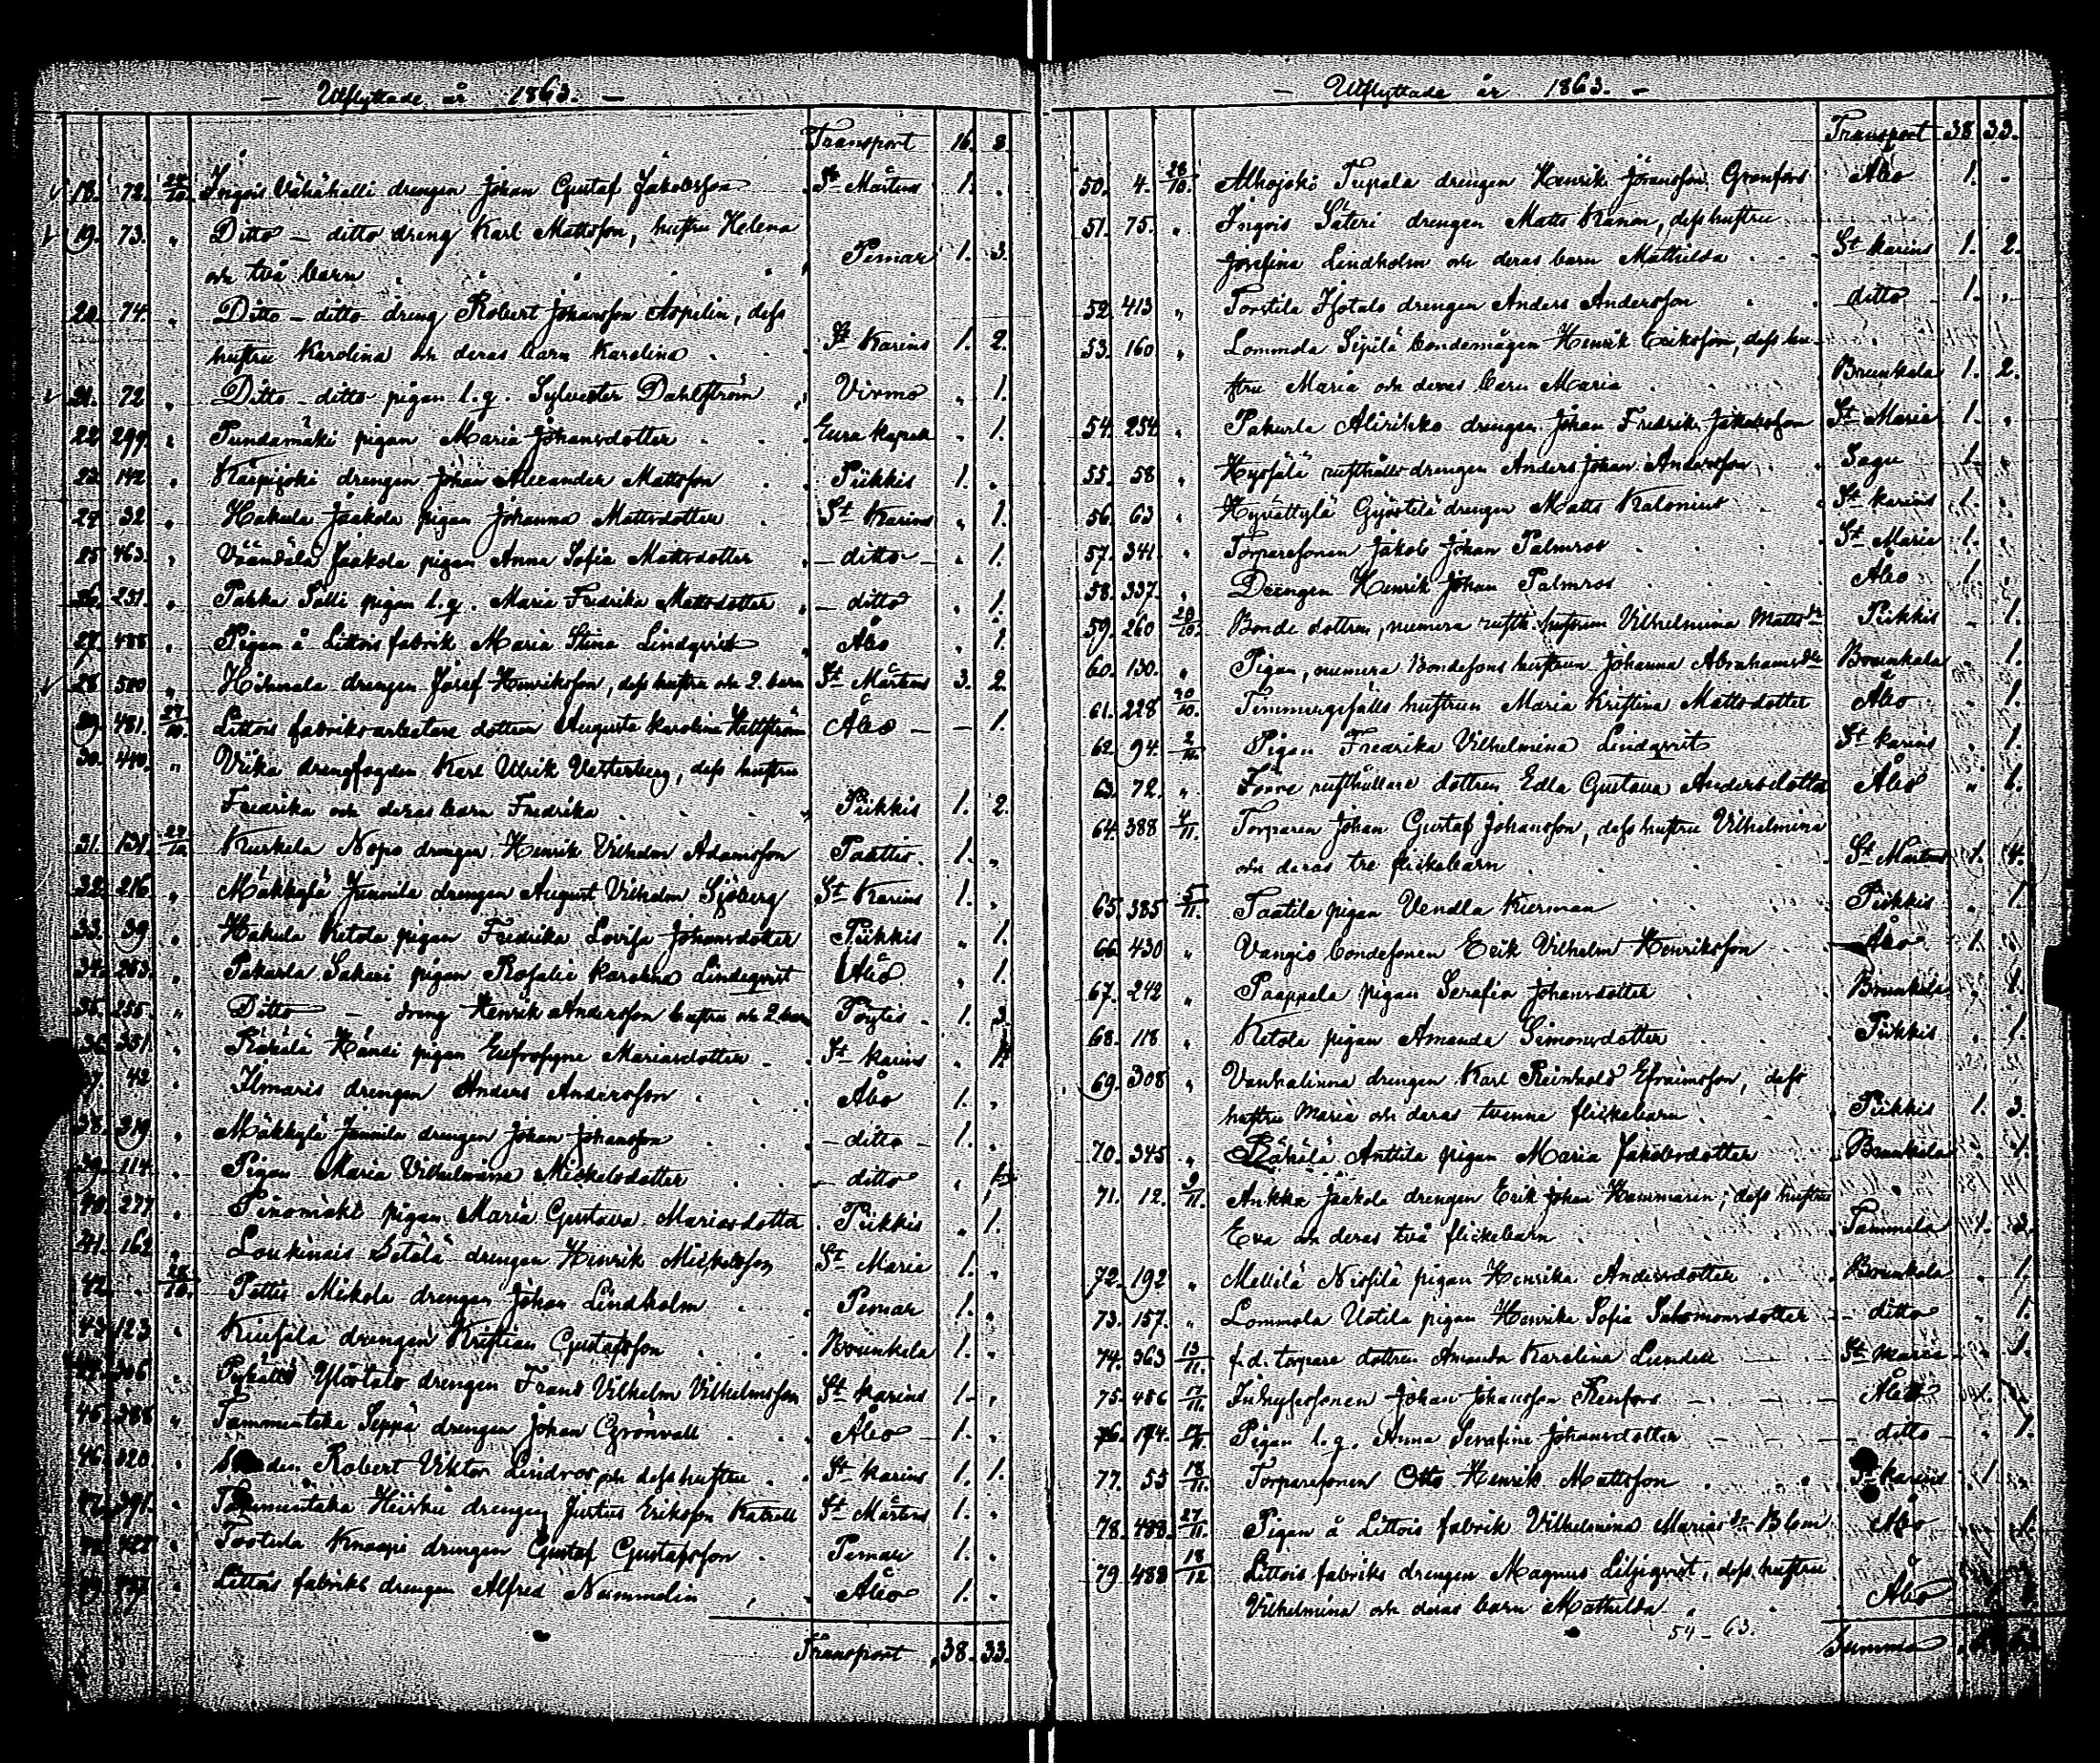 — Utflyttade år 1863. —
Transport 16. 8.
18. 72. 24/10. Ingois Vähähalli drengen Johan Gustaf Jakobsson St Mårtens 1. .
19. 73. „ Ditto — ditto dreng Karl Mattsson, hustru Helena
och två barn Pemar 1. 3.
20. 74. „ Ditto — ditto dreng Robert Johansson Aspelin, dess
hustru Karolina och deras barn Karolina St Karins 1. 2.
21. 72 „ Ditto — ditto pigan l.q. Sylvester Dahlström Virmo „ 1.
22. 299. „ Pundamäki pigan Maria Johansdotter Eura kapell „ 1.
23. 142 „ Kärpijoki drengen Johan Alexander Mattsson Piikkis 1. „
24. 32 „ Hakula Jaakola pigan Johanna Mattsdotter St Karins „ 1.
25. 463. „ Väändälä Jaakola pigan Anna Sofia Mattsdotter — ditto — „ 1.
26. 251. „ Pahka Salli pigan l.q. Maria Fredrika Mattsdotter — ditto „ 1.
27. 488 „ Pigan å Littois fabrik Maria Stina Lindqvist Åbo „ 1.
28. 500 „ drengen Josef Henriksson, dess hustru och 2. barn St Mårtens 3. 2.
29. 481. 27/10. Littois fabriksarbetare dottren Augusta Karolina Åbo — — 1.
30. 440. „ Viika drengfogden Karl Ulrik Vesterberg, dess hustru
Fredrika och deras barn Fredrika Piikkis 1. 2.
31. 131. 27/10 Kurkela Nopo drengen Henrik Vilhelm Adamsson Paattis. 1. „
32. 216. „ Mäkkylä Junnila drengen August Vilhelm Sjöberg St Karins 1. „
33. 39 „ Hakula Ketola pigan Fredrika Lovisa Johansdotter Piikkis „ 1.
34. 253. „ Pakurla Sakari pigan Rosalie Karolina Lindeqvist Åbo „ 1.
35. 255. „ Ditto — dreng Henrik Andersson hustru och 2 barn Pöytis 1. 3.
36. 351. „ Räkälä Hänsi pigan Eufrosyne Mariasdotter St Karins „ 1.
37. 42 „ Ilmaris drengen Anders Andersson Åbo 1. „
38. 219 „ Mäkkylä Junnila drengen Johan Johansson — ditto — 1. „
39. 114. „ Pigan Maria Vilhelmina Mickelsdotter — ditto „ 1.
40. 277 „ Penomäki pigan Maria Gustava Mariasdotter Piikkis „ 1.
41. 162 „ Loukinais Setälä drengen Henrik Mickelsson St Maria 1. „
42. . 28/10. Pettis Mikola drengen Johan Lindholm Pemar 1. „
43. 123 „ drengen Kristian Gustafsson Brunkala 1. „
44. 306 „ Ylöstalo drengen Frans Vilhelm Vilhelmsson St Karins 1. „
45. 388 „ Tammentaka Seppä drengen Johan Grönvall Åbo 1. „
46. 320. „ Robert Viktor Lindroos och dess hustru St Karins 1. 1.
47. 391. „ Tammentaka Heiskii drengen Justus Eriksson St Mårtens 1. „
427 „ Tortula Knaapi drengen Gustaf Gustafsson Pemar 1. „
„ Littois fabriks drengen Alfred Nummelin Åbo 1. „
Transport 38. 33.
— Utflyttade år 1863. —
Transport 38 33.
50. 4. 28/10. Alhojoki Tupala drengen Henrik Göransson Granfors Åbo 1. „
51. 75. „ Ingois Säteri drengen Matts Kanon, dess hustru
Josefina Lindholm och deras barn Mathilda St Karins 1. 2.
52. 413 „ Torstila Isotalo drengen Anders Andersson ditto 1. „
53. 160 „ Lommola Sipilä bondemågen Henrik Eriksson, dess hu-
stru Maria och deras barn Maria Brunkala 1. 2.
54. 254. „ Pakurla Alirikko drengen Johan Fredrik Jakobsson St Maria 1. „
55. 58 „ rusthålls drengen Anders Johan Andersson Sagu 1. „
56. 63 „ Hyvättylä Gyöstilä drengen Matts Kalonius St Karins 1. „
57. 341. „ Torparesonen Jakob Johan Palmros St Maria 1. „
58. 337. „ Drengen Henrik Johan Palmros Åbo 1. „
59. 260 28/10. Bonde dottren, numera rusth. hustrun Vilhelmina Mattsdr Piikkis „ 1.
60. 130. „ Pigan, numera Bondesons hustrun Johanna Abrahamsdtr Brunkala „ 1.
61. 228 30/10. Timmergesälls hustrun Maria Kristina Mattsdotter Åbo „ 1.
62. 94. 2/11. Pigan Fredrika Vilhelmina Lindqvist St Karins „ 1.
63. 72. „ Förre rusthållare dottren Edla Gustava Andersdotter Åbo „ 1.
64. 388 4/11. Torparen Johan Gustaf Johansson, dess hustru Vilhelmina
och deras tre flickebarn St Mårtens 1. 4.
65. 385 5/11. Taatila pigan Vendla Kierman Piikkis „ 1.
66. 430 „ Vangio bondesonen Erik Vilhelm Henriksson Åbo 1. „
67. 242 „ Paappala pigan Serafia Johansdotter Brunkala „ 1.
68. 118 „ Ketola pigan Amanda Simonsdotter Piikkis „ 1.
69. 308 „ Vanhalinna drengen Karl Reinhold Efraimsson, dess
hustru Maria och deras tvenne flickebarn Piikkis 1. 3.
70. 345 „ Räkälä Anttila pigan Maria Jakobsdotter Brunkala „ 1.
71. 12. 9/11. Ankka Jaakola drengen Erik Johan Hammarin, dess hustru
Eva och deras två flickebarn Tammela 1. 3.
72. 192 „ Mellilä pigan Henrika Andersdotter Brunkala „ 1.
73. 157. „ Lommola Uotila pigan Henrika Sofia Salomonsdotter — ditto „ 1.
74. 363 13/11. f.d. torpare dottren Amanda Karolina Lundell St Maria „ 1.
75. 456 17/11. Inhysesonen Johan Johansson Renfors Åbo 1. „
76. 174. 17/11. Pigan l.q. Anna Serafina Johansdotter — ditto — „ 1.
77. 55 18/11. Torparesonen Otto Henrik Mattsson St Karins 1. „
78. 488. 27/11. Pigan å Littois fabrik Vilhelmina Marias dr Blom Åbo „ 1.
79 488 18/12 Littois fabriks drengen Magnus Liljeqvist, dess hustru
Vilhelmina och deras barn Mathilda Åbo
54 – 63.
Summa